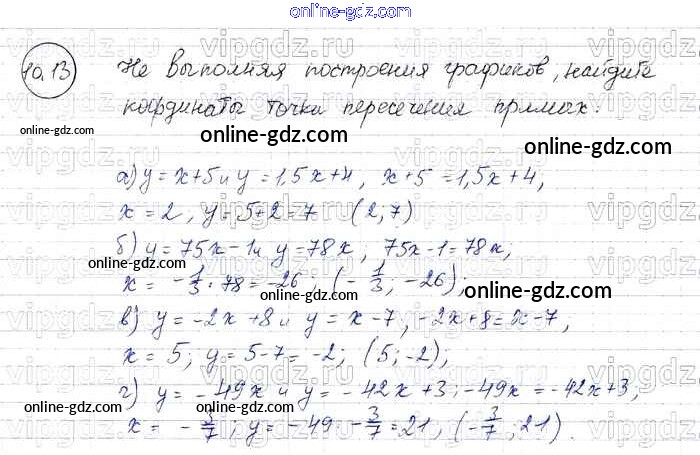 online-gdz.com
10.13
Не выполняя построения графиков, найдите
координаты точки пересечения прямых.
online-gdz.com
online-gdz.com
а) y = x+5 и y = 1,5x+4, x+5 = 1,5x+4,
x = 2, y = 5+2 = 7 (2; 7)
online-gdz.com
б) y = 75x-1 и y = 78x; 75x-1 = 78x;
x = -1/3 · 78 = -26; (-1/3; -26);
online-gdz.com
online-gdz.com
в) y = -2x+8 и y = x-7, -2x+8 = x-7,
x = 5; y = 5-7 = -2; (5; -2);
г) y = -49x и y = -42x+3; -49x = -42x+3;
online-gdz.com
online-gdz.com
x = -3/7; y = -49 · -3/7 = 21, (-3/7; 21).
online-gdz.com
vipgdz.ru